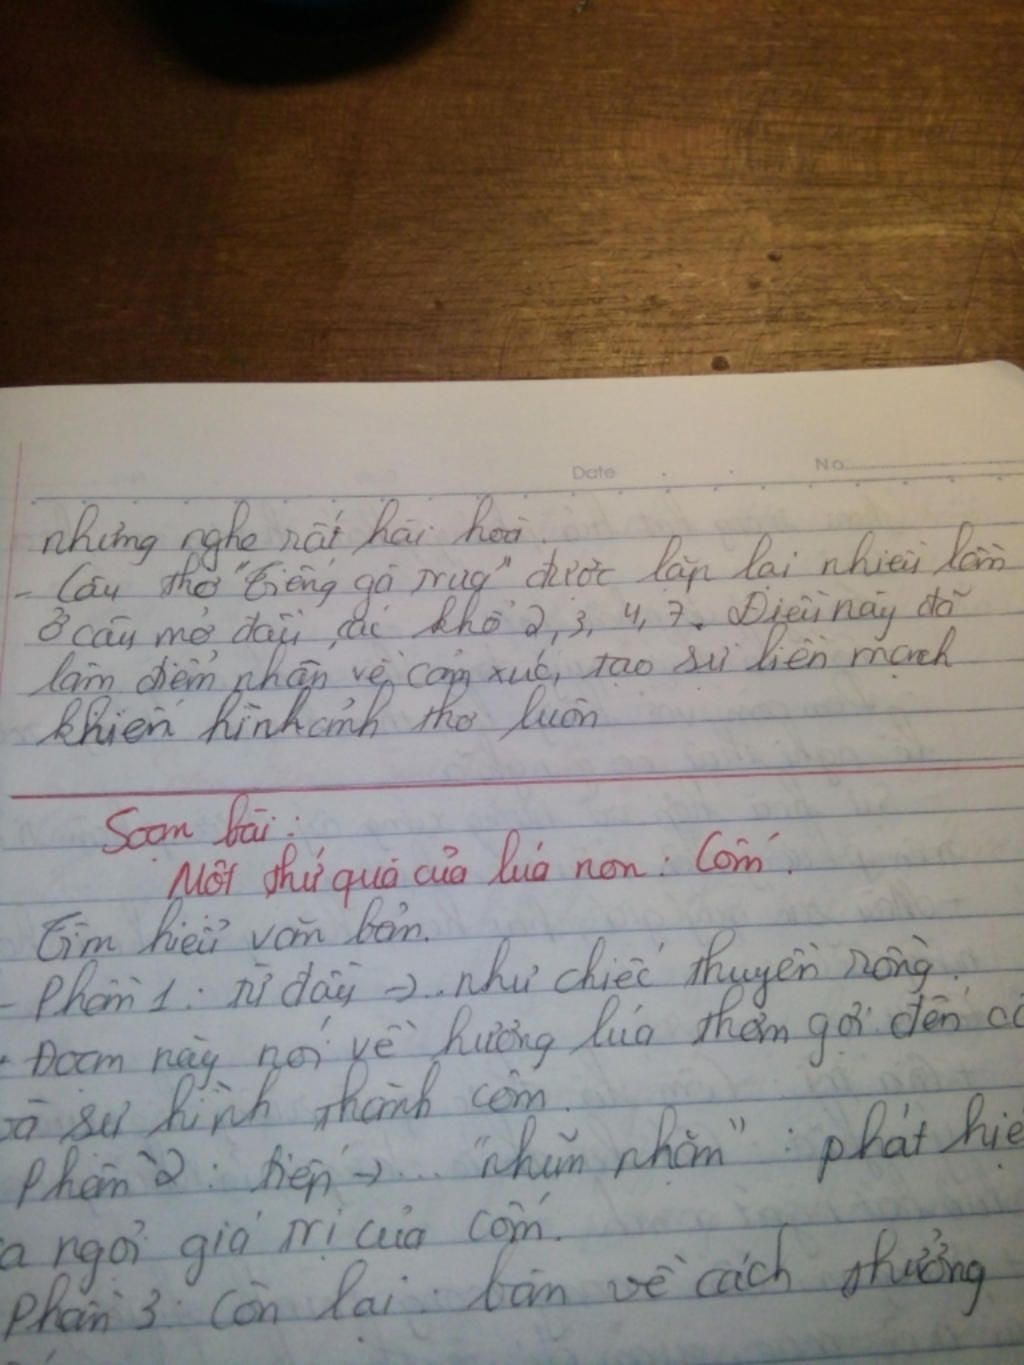 Date No
nhưng nghe rất hài hoà.
- Câu thơ "Tiếng gà trưa" được lặp lại nhiều lần
ở câu mở đầu các khổ 2, 3, 4, 7. Điều này đã
làm điểm nhấn về cảm xúc, tạo sự liền mạch
khiến hình ảnh thơ luôn
Soạn bài:
Một thứ quà của lúa non: Cốm.
Tìm hiểu văn bản.
- Phần 1: từ đầu → ... như chiếc thuyền rồng.
+ Đoạn này nói về hương lúa thơm gợi đến cố
à sự hình thành cốm.
Phần 2: tiếp → ... "nhũn nhặn": phát hiệ
a ngợi giá trị của cốm.
Phần 3: Còn lại: bàn về cách thưởng